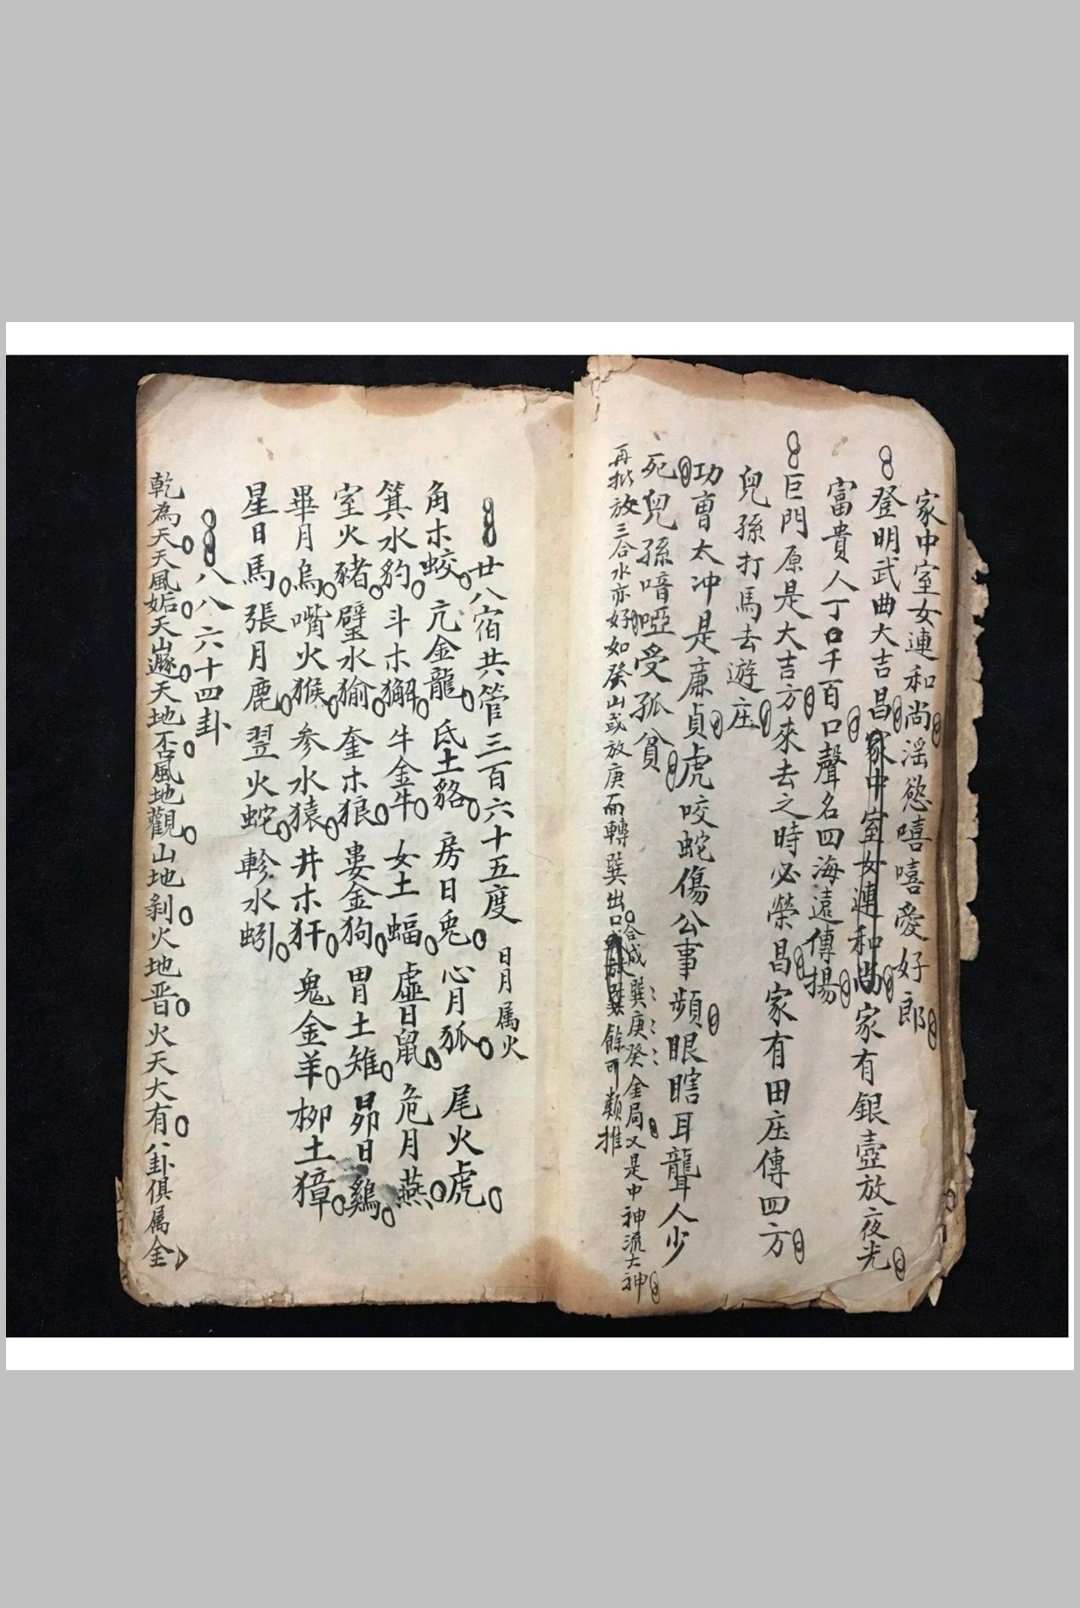 家中室女連和尚滛慾嘻嘻愛好郎
登明武曲大吉昌家中室女連和尚家有銀壺放夜光
富貴人丁口千百口聲名四海遠傳揚
巨門原是大吉方來去之時必榮昌家有田庄傳四方
兒孫打馬去遊庄
功曹太冲是廉貞虎咬蛇傷公事頻眼瞎耳聾人少
死兒孫喑啞受孤貧
再批放三合水亦好如癸山或放庚而轉巽出口合成巽庚癸金局又是中神流大神
餘可類推
廿八宿共管三百六十五度 日月属火
角木蛟 亢金龍 氐土貉 房日兎 心月狐 尾火虎
箕水豹 斗木獬 牛金牛 女土蝠 虛日鼠 危月燕
室火豬 壁水㺄 奎木狼 婁金狗 胃土雉 昴日鷄
畢月烏 嘴火猴 参水猿 井木犴 鬼金羊 柳土獐
星日馬 張月鹿 翌火蛇 軫水蚓
八八六十四卦
乾為天天風姤天山遯天地否風地觀山地剝火地晋火天大有八卦俱属金